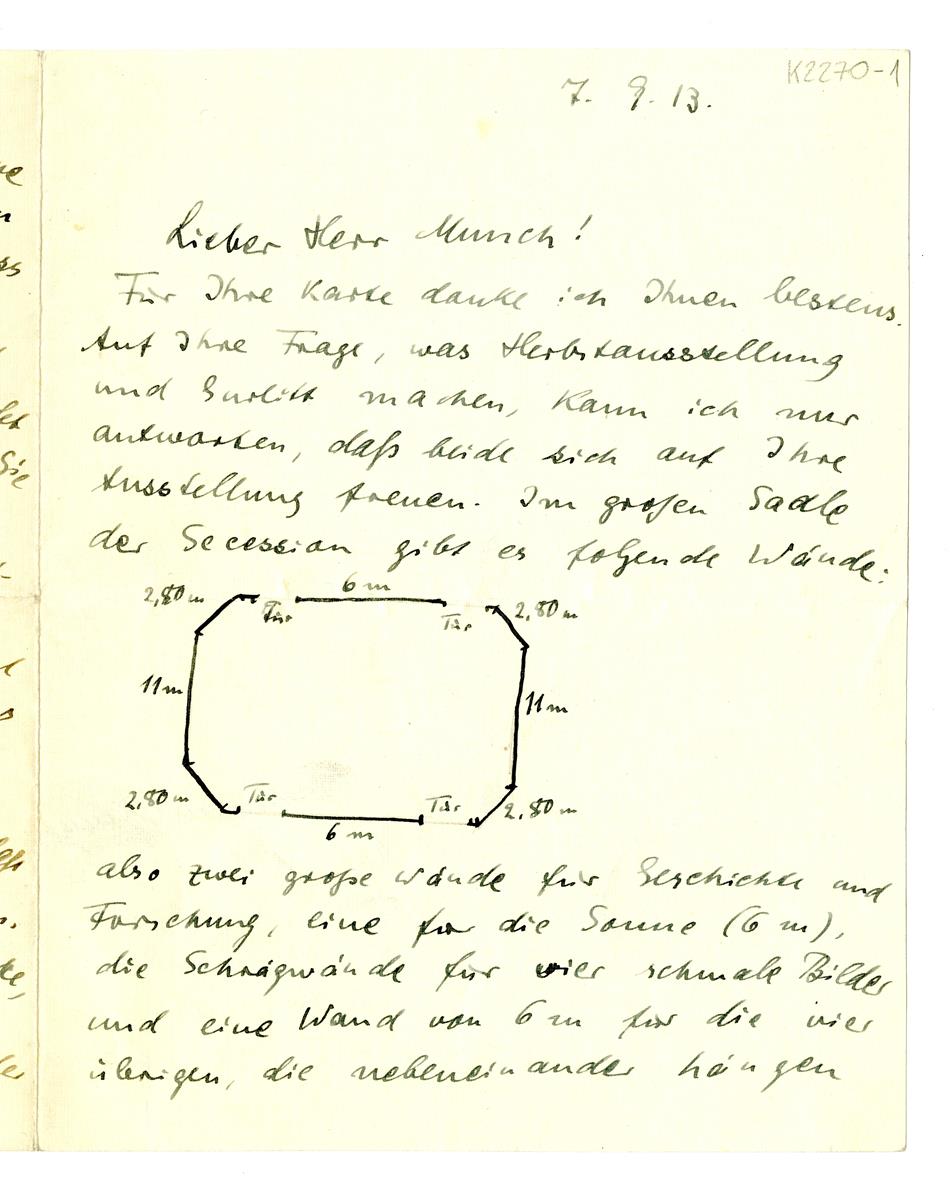 K2270-1
7. 9. 13.
Lieber Herr Munch!
Für Ihre Karte danke ich Ihnen bestens.
Auf Ihre Frage, was Herbstausstellung
und Gurlitt machen, kann ich nur
antworten, daß beide sich auf Ihre
Ausstellung freuen. Im großen Saale
der Secession gibt es folgende Wände:
2,80 m Tür 6 m Tür 2,80 m
11 m 11 m
2,80 m Tür 6 m Tür 2,80 m
also zwei große Wände für Geschichte und
Forschung, eine für die Sonne (6 m),
die Schrägwände für vier schmale Bilder
und eine Wand von 6 m für die vier
übrigen, die nebeneinander hängen